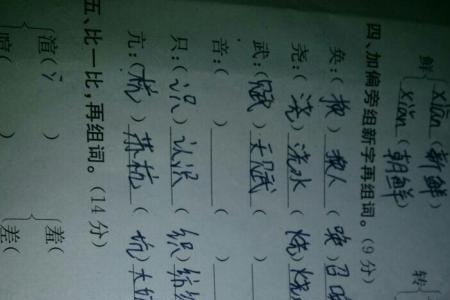 xiān (新鲜)
鲜 转
xiǎn (朝鲜)
四、加偏旁组新字再组词。(9分)
奂:(换) 换人 (唤) 召唤
尧:(浇) 浇水 (烧) 烧
武:(赋) 天赋 (
音:( ) (
只:(识) 认识 (织) 纺织
亢:(杭) 苏杭 (坑) 大坑
五、比一比,再组词。(14分)
渲(氵 ) 羞(
喧( ) 差(